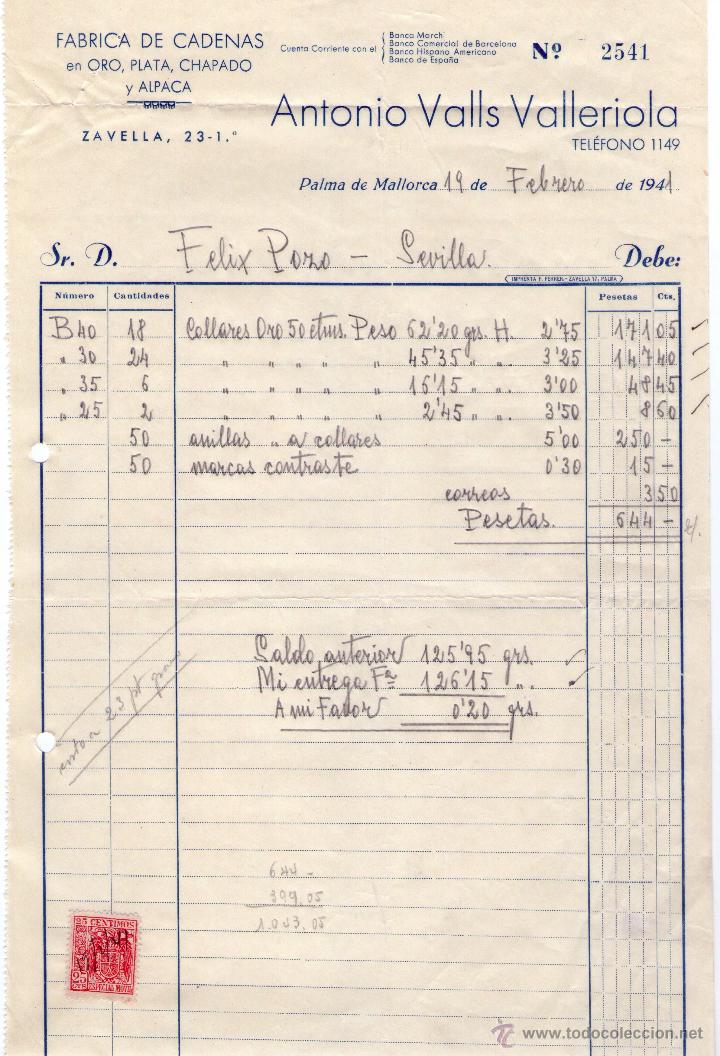 FABRICA DE CADENAS
en ORO, PLATA, CHAPADO
y ALPACA
ZAVELLA, 23-1.º
Cuenta Corriente con el
Banca March
Banco Comercial de Barcelona
Banco Hispano Americano
Banco de España
Nº 2541
Antonio Valls Valleriola
TELÉFONO 1149
Palma de Mallorca 19 de Febrero de 1941
Sr. D. Felix Pozo - Sevilla. Debe:
IMPRENTA F. FERRER.-ZAVELLA 17, PALMA
Número Cantidades Pesetas Cts.
B 40 18 Collares Oro 50 ctms. Peso 62'20 grs. H. 2'75 171 05
" 30 24 " " " " " 45'35 " " 3'25 147 40
" 35 6 " " " " " 16'15 " " 3'00 48 45
" 25 2 " " " " " 2'45 " " 3'50 8 60
50 anillas " a collares 5'00 250 -
50 marcas contraste 0'30 15 -
correos 3 50
Pesetas. 644 -
Saldo anterior 125'95 grs.
Mi entrega Fª 126'15 ".
A mi Favor 0'20 grs.
a 23 pt
644 -
399.05
1.043.05
25 CENTIMOS
25 CTS
ESPECIAL MOVIL
www.todocoleccion.net